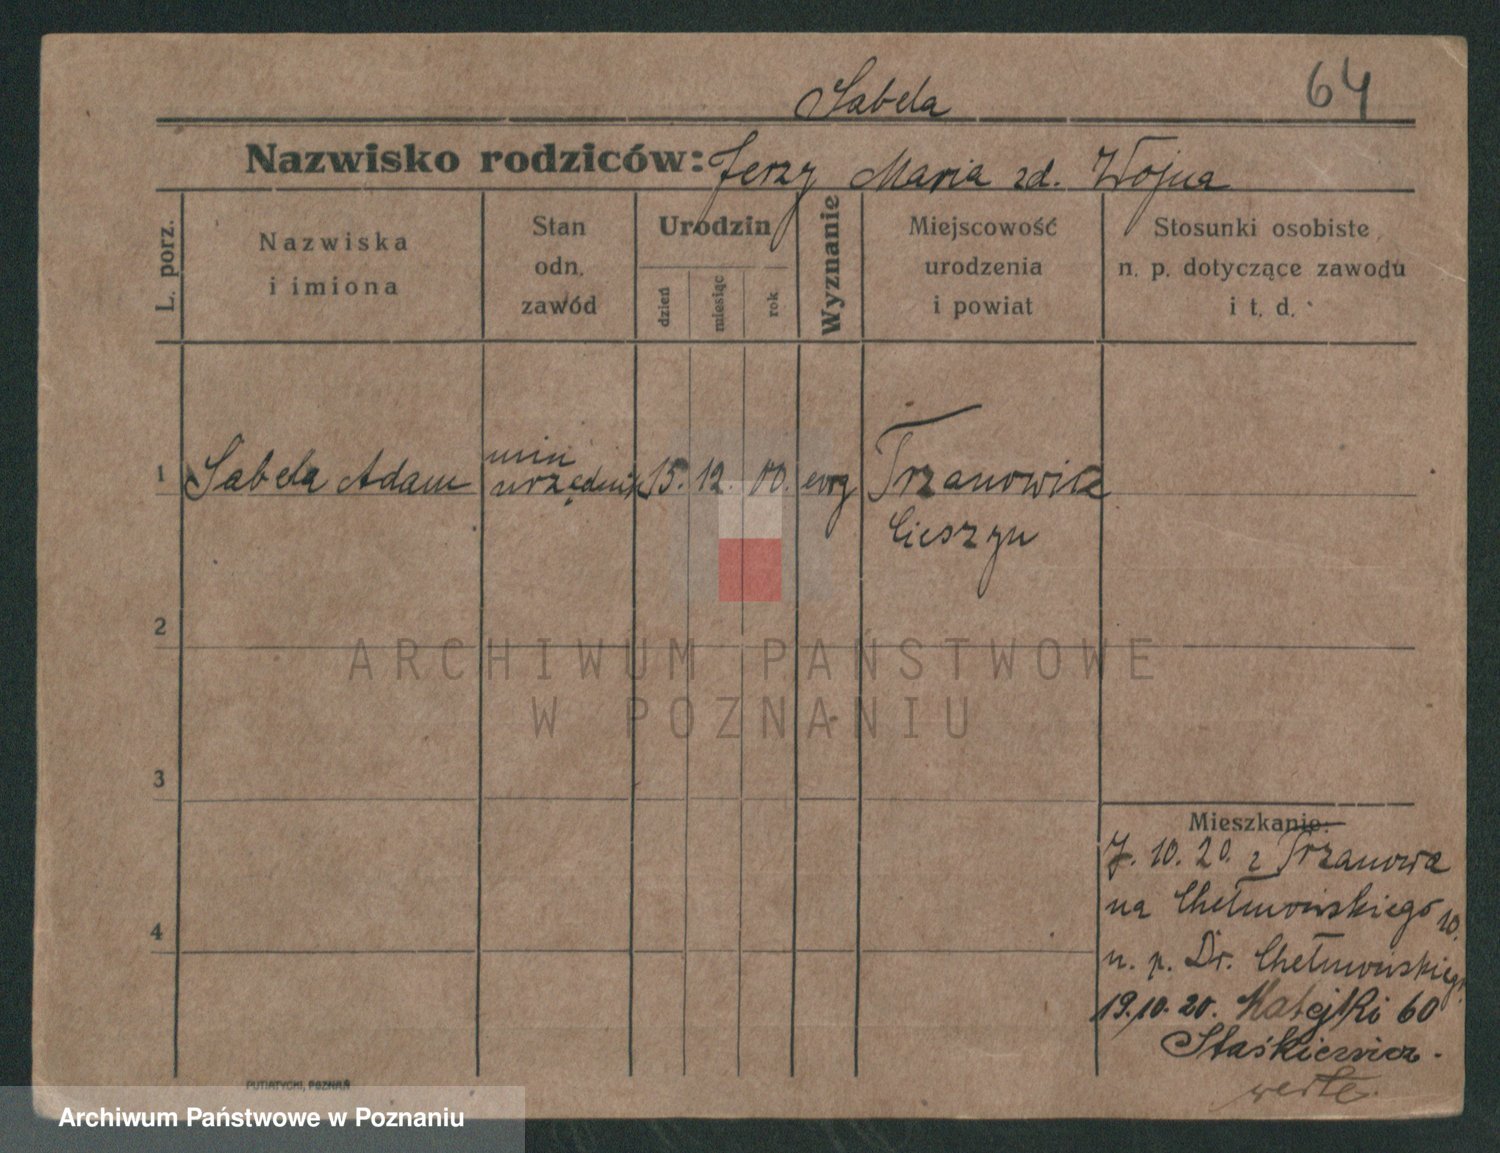 64
Sabela
Nazwisko rodziców: Jerzy Maria zd. Wojna
L. porz.
Nazwiska
i imiona
Stan
odn.
zawód
Urodzin
dzień
miesiąc
rok
Wyznanie
Miejscowość
urodzenia
i powiat
Stosunki osobiste
n. p. dotyczące zawodu
i t. d.
1 Sabela Adam
urzędnik
15. 12. 00. ewg
Trzanowice
Cieszyn
2
3
4
ARCHIWUM PAŃSTWOWE
W POZNANIU
Mieszkanie:
7. 10. 20. z Trzanowa
na Chełmońskiego 10.
u. p. Dr. Chełmońskiego
19.10.20. Matejki 60
Staśkiewicz.
verte.
PUTIATYCKI, POZNAŃ
Archiwum Państwowe w Poznaniu